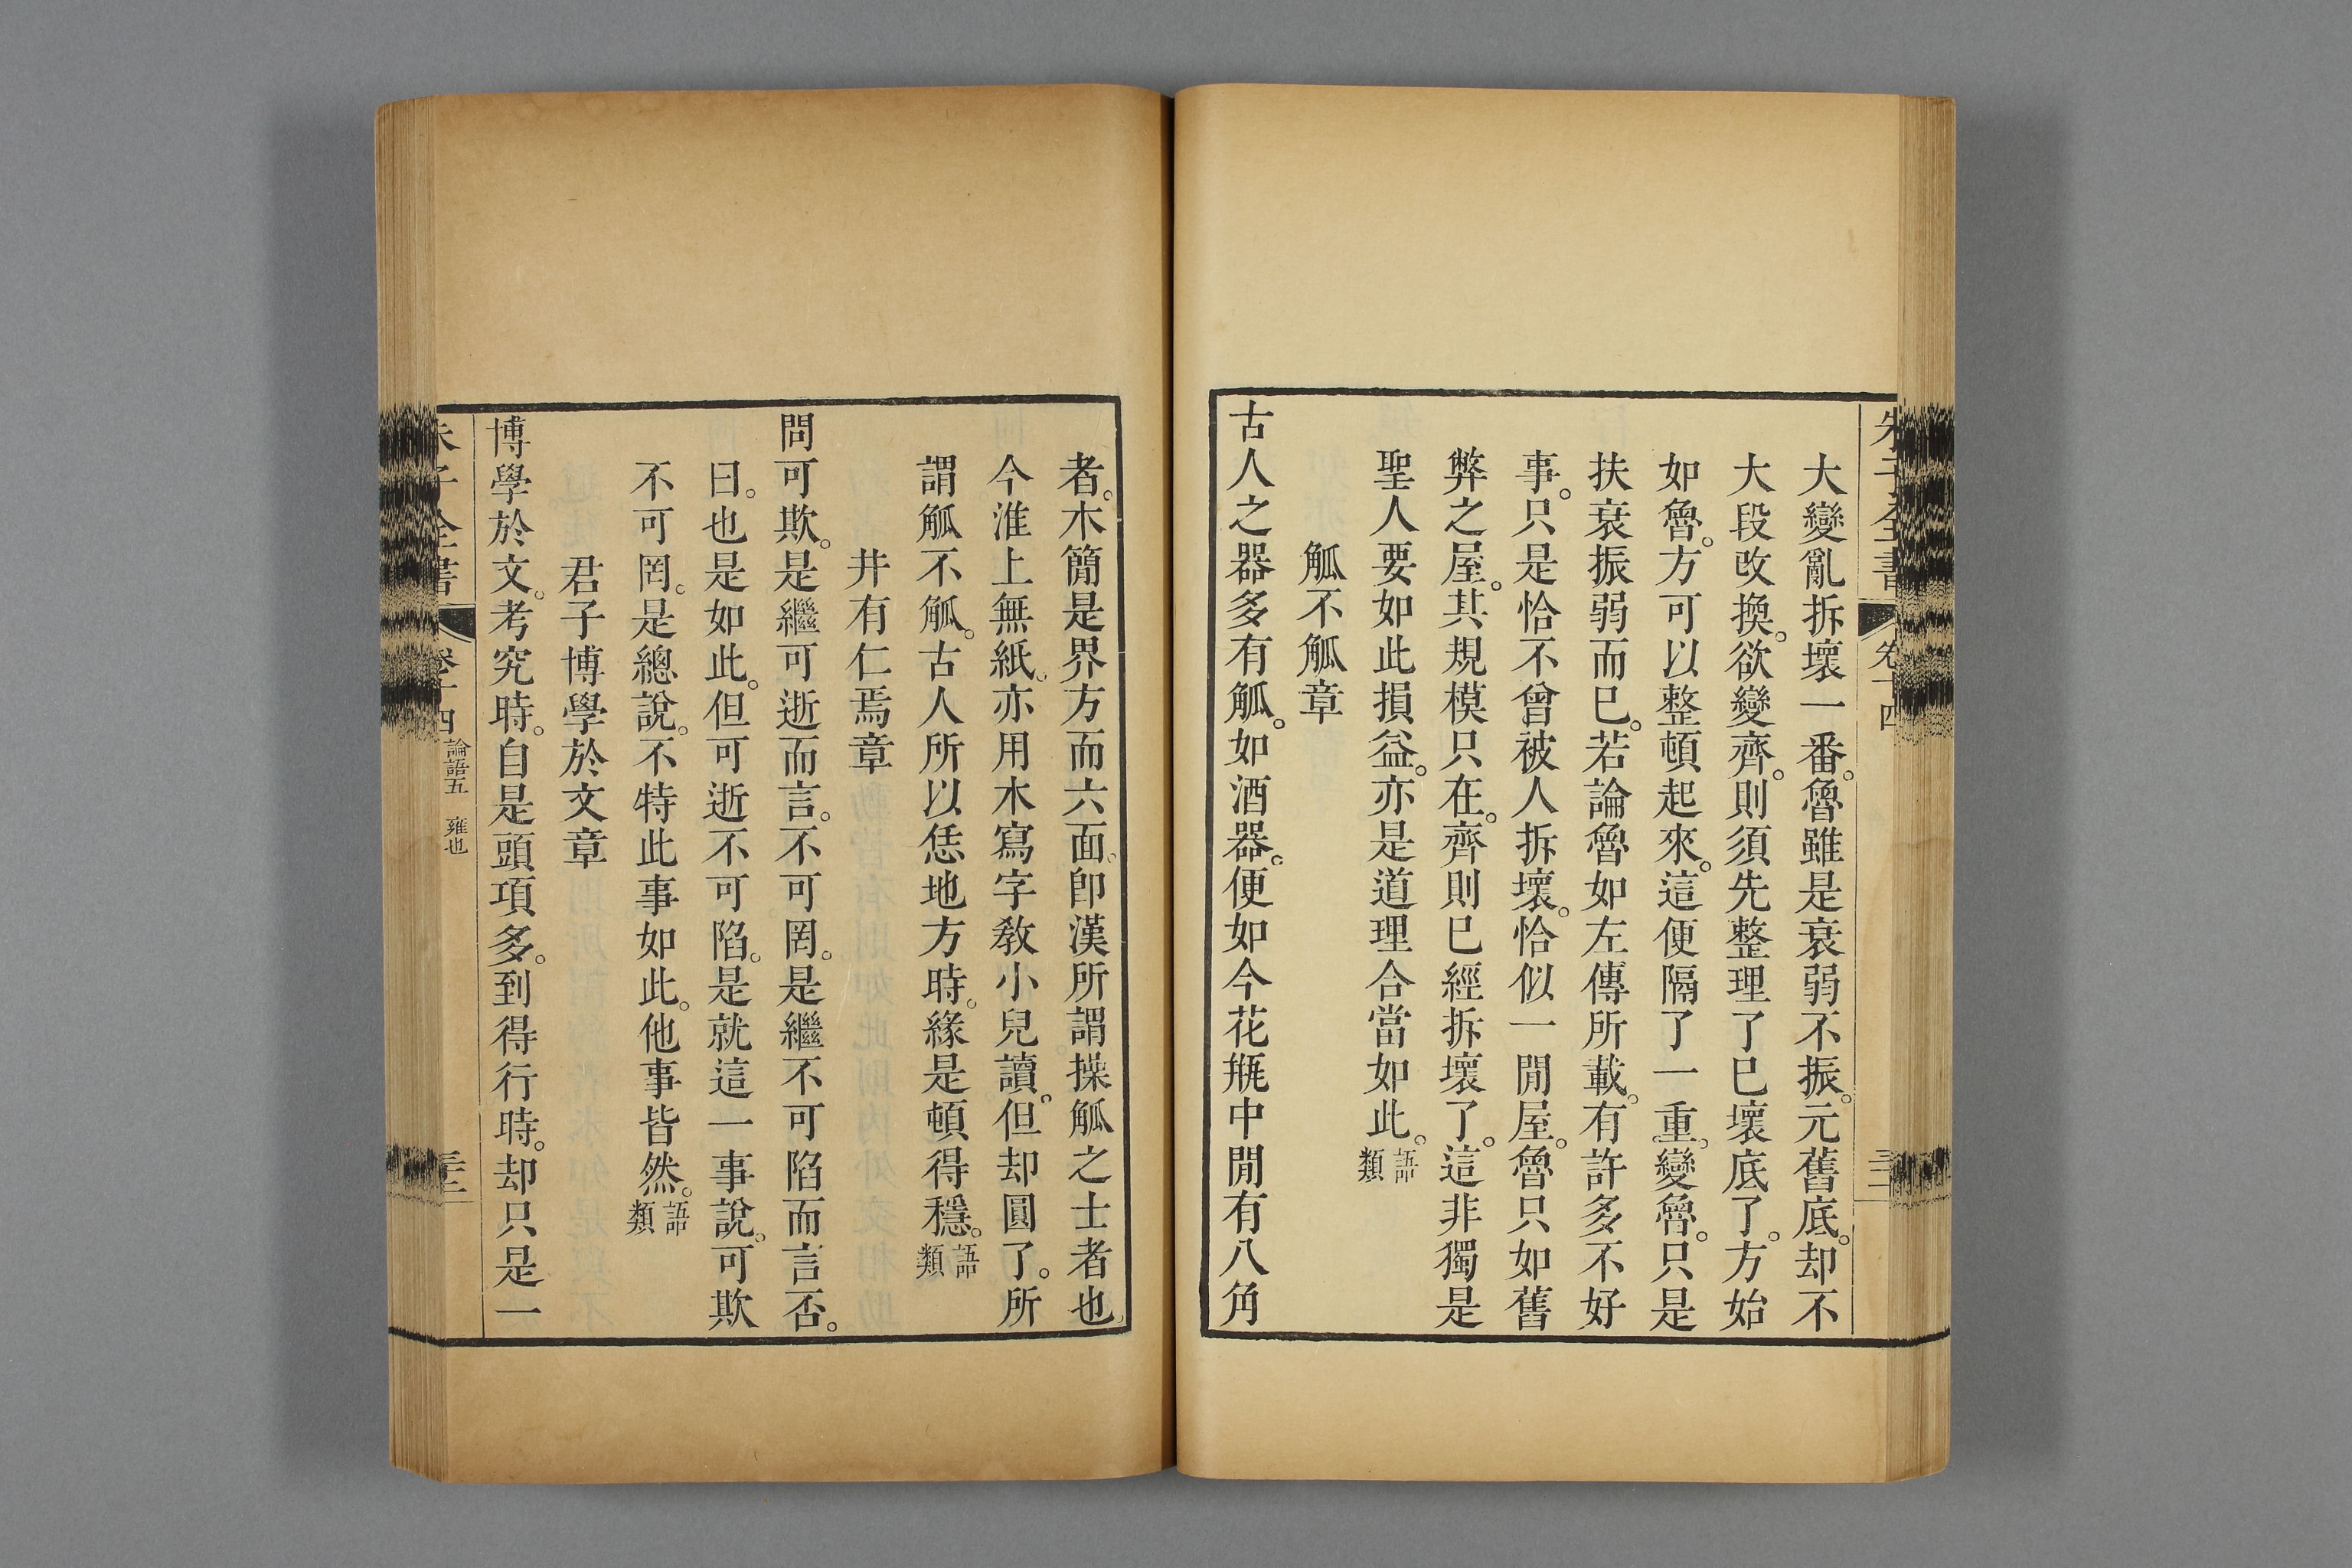 大變亂拆壞一番。魯雖是衰弱不振。元舊底。却不
大段改換。欲變齊。則須先整理了已壞底了。方始
如魯。方可以整頓起來。這便隔了一重。變魯。只是
扶衰振弱而已。若論魯如左傳所載。有許多不好
事。只是恰不曾被人拆壞。恰似一閒屋。魯只如舊
弊之屋。其規模只在。齊則已經拆壞了。這非獨是
聖人要如此損益。亦是道理合當如此。語類
觚不觚章
古人之器多有觚。如酒器。便如今花甁中閒有八角
者。木簡是界方而六面。卽漢所謂操觚之士者也
今淮上無紙。亦用木寫字敎小兒讀。但却圓了。所
謂觚不觚。古人所以恁地方時。緣是頓得穩。語類
井有仁焉章
問可欺。是繼可逝而言。不可罔。是繼不可陷而言否。
曰。也是如此。但可逝不可陷。是就這一事說。可欺
不可罔。是總說。不特此事如此。他事皆然。語類
君子博學於文章
博學於文。考究時。自是頭項多。到得行時。却只是一
朱子全書
卷十四
論語五 雍也